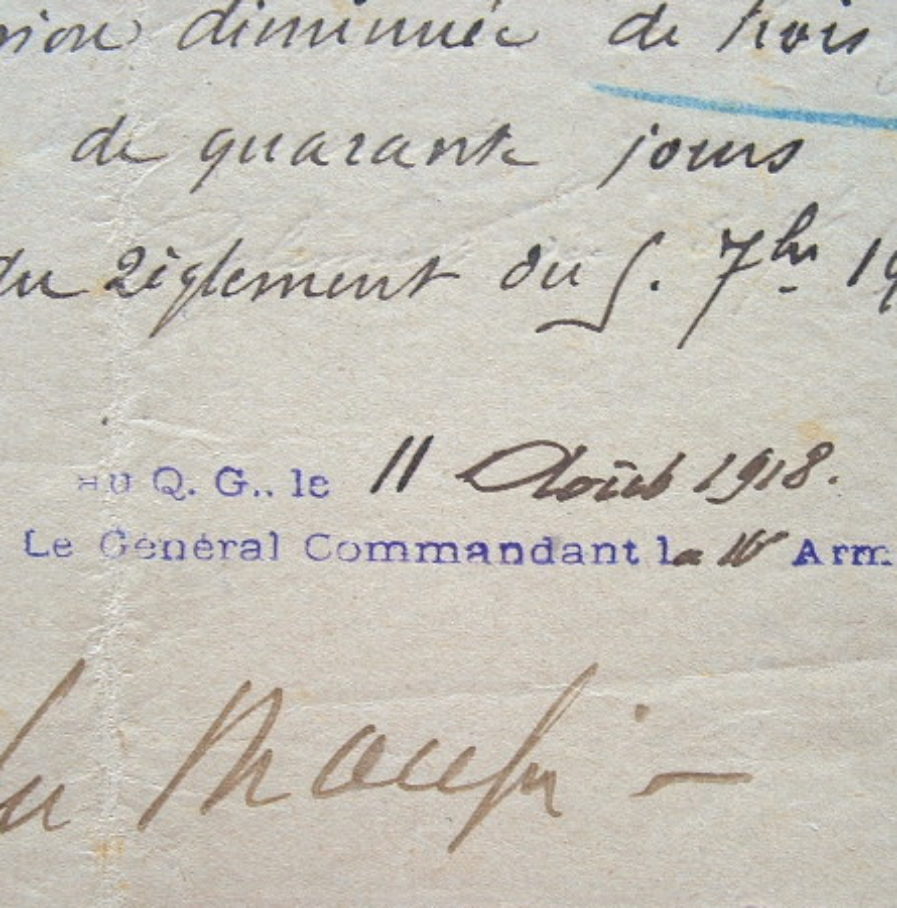 sion diminuée de trois
de quarante jours
du règlement du 5. 7bre 19
au Q. G., le 11 Août 1918.
Le Général Commandant la Arm